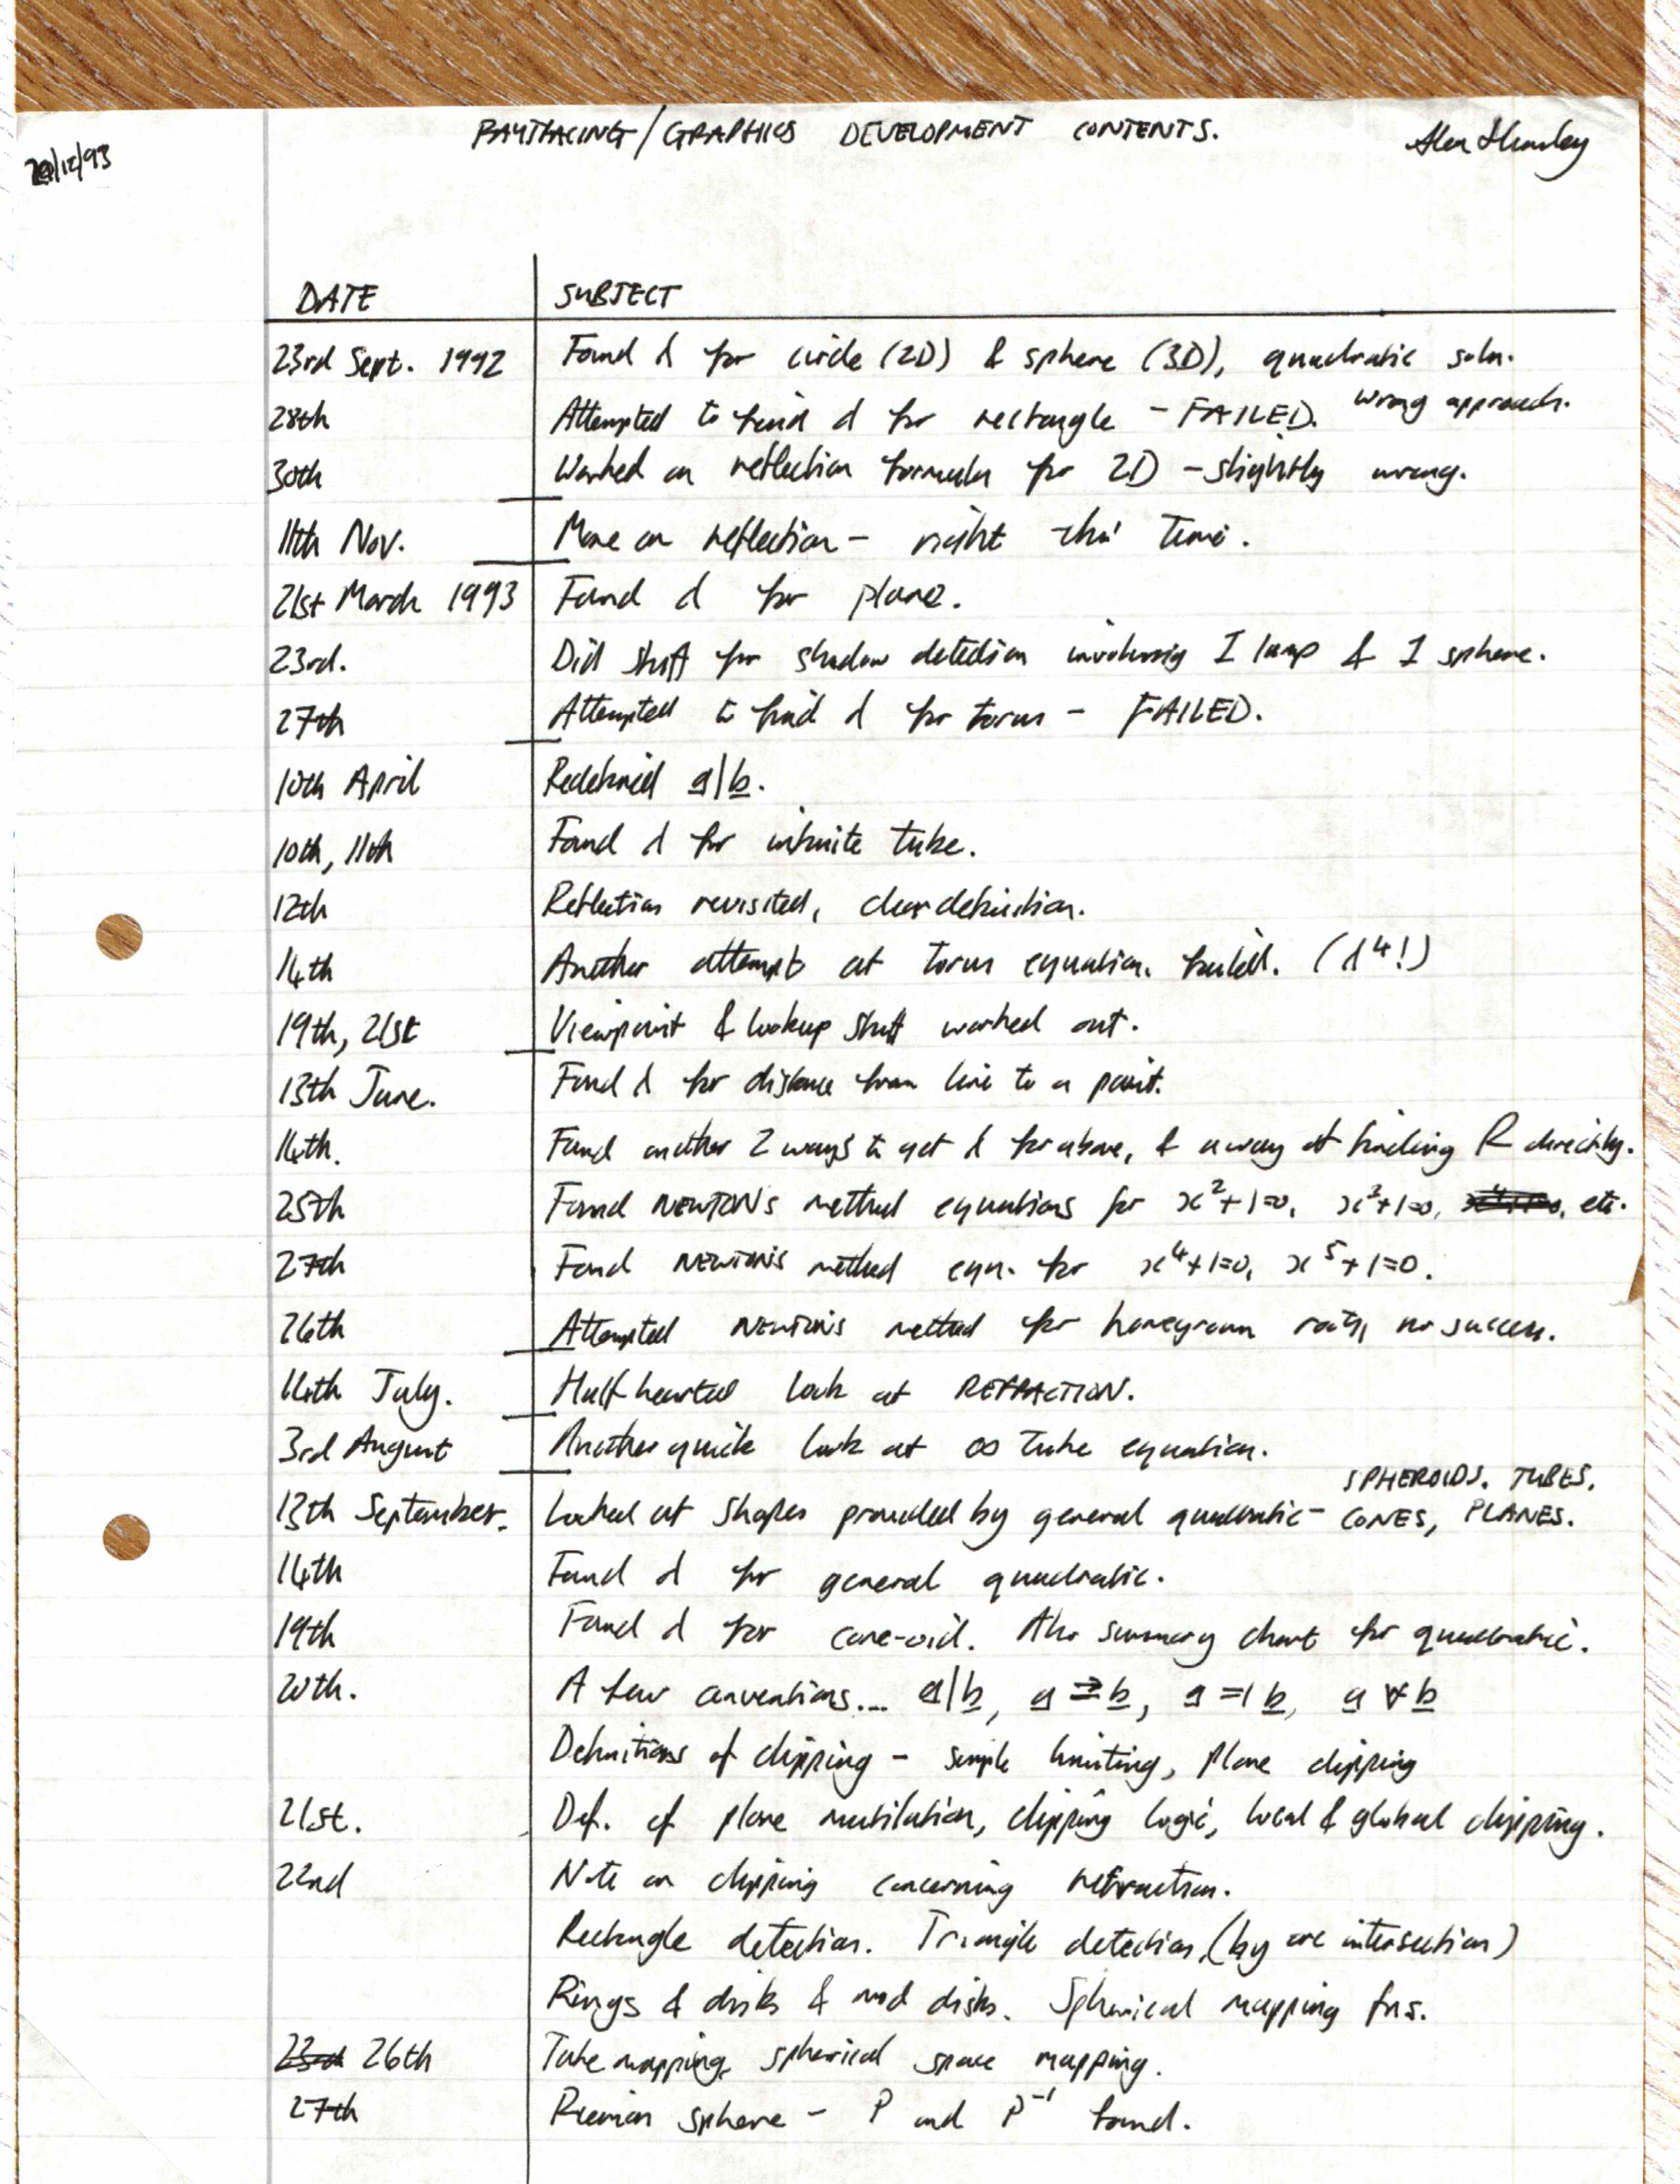 RAYTRACING/GRAPHICS DEVELOPMENT CONTENTS.
/12/93
DATE SUBJECT
23rd Sept. 1992 Found d for circle (2D) & sphere (3D), quadratic soln.
28th Attempted to find d for rectangle - FAILED. wrong approach.
30th Worked on reflection formula for 2D - slightly wrong.
11th Nov. More on reflection - right this time.
21st March 1993 Found d for plane.
23rd. Did stuff for shadow detection involving 1 lamp & 1 sphere.
27th Attempted to find d for torus - FAILED.
10th April Redefined a|b.
10th, 11th Found d for infinite tube.
12th Reflection revisited, clear definition.
14th Another attempt at torus equation. failed. (d⁴!)
19th, 21st Viewpoint & lookup stuff worked out.
13th June. Found d for distance from line to a point.
14th. Found another 2 ways to get d for above, & a way of finding R directly.
25th Found NEWTON'S method equations for x²+1=0, x³+1=0, etc.
27th Found NEWTON'S method eqn. for x⁴+1=0, x⁵+1=0.
26th Attempted NEWTON'S method for roots, no success.
14th July. Half hearted look at REFRACTION.
3rd August Another quick look at ∞ tube equation.
13th September. Looked at shapes provided by general quadratic - SPHEROIDS. TUBES.
CONES, PLANES.
14th Found d for general quadratic.
19th Found d for cone-oid. Also summary chart for quadratic.
20th. A few conventions... a|b, a ⇉ b, a =| b, a ∀ b
Definitions of clipping - simple limiting, plane clipping
21st. Def. of plane mutilation, clipping logic, local & global clipping.
22nd Note on clipping concerning refraction.
Rectangle detection. Triangle detection (by arc intersection)
Rings & disks & mod disks. Spherical mapping fns.
23rd 26th Tube mapping, spherical space mapping.
27th Rieman sphere - P and P⁻¹ found.